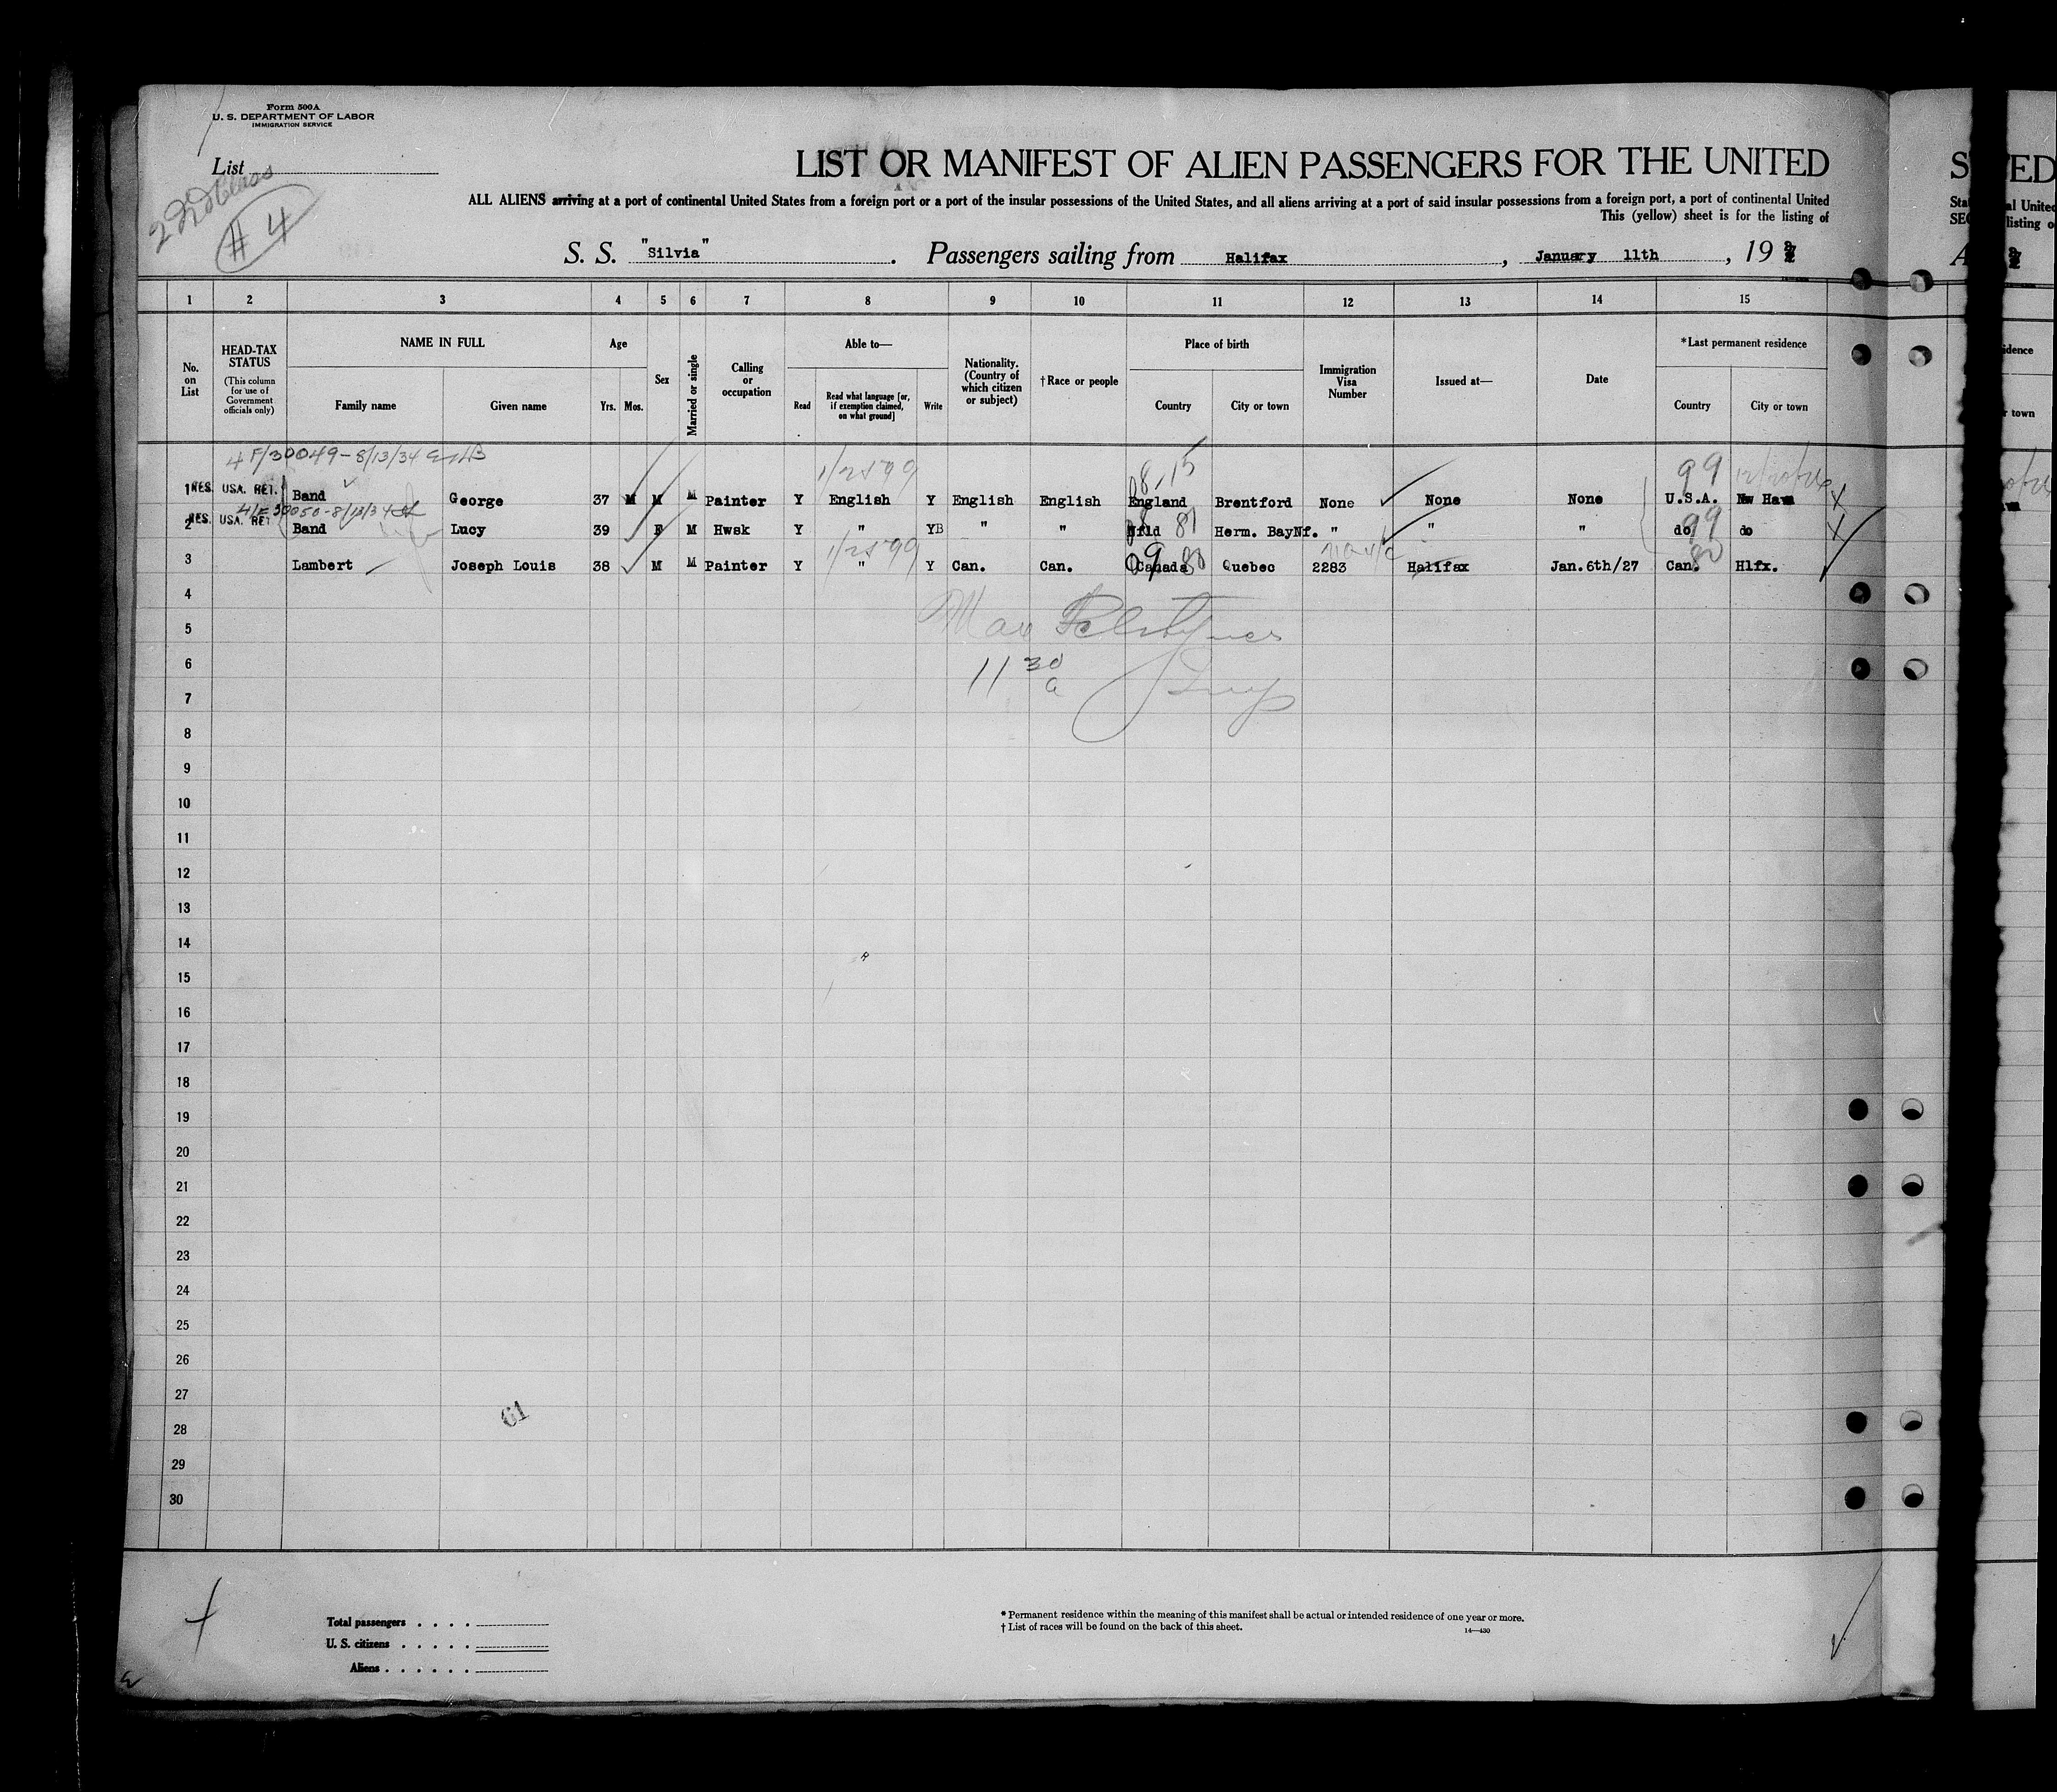 Form 500A
U. S. DEPARTMENT OF LABOR
IMMIGRATION SERVICE
List
2nd Class
# 4
LIST OR MANIFEST OF ALIEN PASSENGERS FOR THE UNITED
ALL ALIENS arriving at a port of continental United States from a foreign port or a port of the insular possessions of the United States, and all aliens arriving at a port of said insular possessions from a foreign port, a port of continental United
This (yellow) sheet is for the listing of
S. S. "Silvia". Passengers sailing from Halifax, January 11th, 19
1 2 3 4 5 6 7 8 9 10 11 12 13 14 15
No. on List
HEAD-TAX STATUS (This column for use of Government officials only)
NAME IN FULL
Family name Given name
Age
Yrs. Mos.
Sex
Married or single
Calling or occupation
Able to—
Read
Read what language [or, if exemption claimed, on what ground]
Write
Nationality. (Country of which citizen or subject)
† Race or people
Place of birth
Country City or town
Immigration Visa Number
Issued at—
Date
* Last permanent residence
Country City or town
4 F/30049 - 8/13/34
1 RES. USA. RET. Band George 37 M M M Painter Y English Y English English England Brentford None None None U.S.A. Nw Havn
4/F 30050 - 8/13/34
2 RES. USA. RET Band Lucy 39 F M Hwsk Y " Y " " Nfld Herm. BayNf. " " " do do
3 Lambert Joseph Louis 38 M M Painter Y " Y Can. Can. Canada Quebec 2283 Halifax Jan.6th/27 Can. Hlfx.
4
5
Max
6
11 30 a
7
8
9
10
11
12
13
14
15
16
17
18
19
20
21
22
23
24
25
26
27
61
28
29
30
Total passengers . . . .
U. S. citizens . . . . .
Aliens . . . . . .
* Permanent residence within the meaning of this manifest shall be actual or intended residence of one year or more.
† List of races will be found on the back of this sheet.
14—430